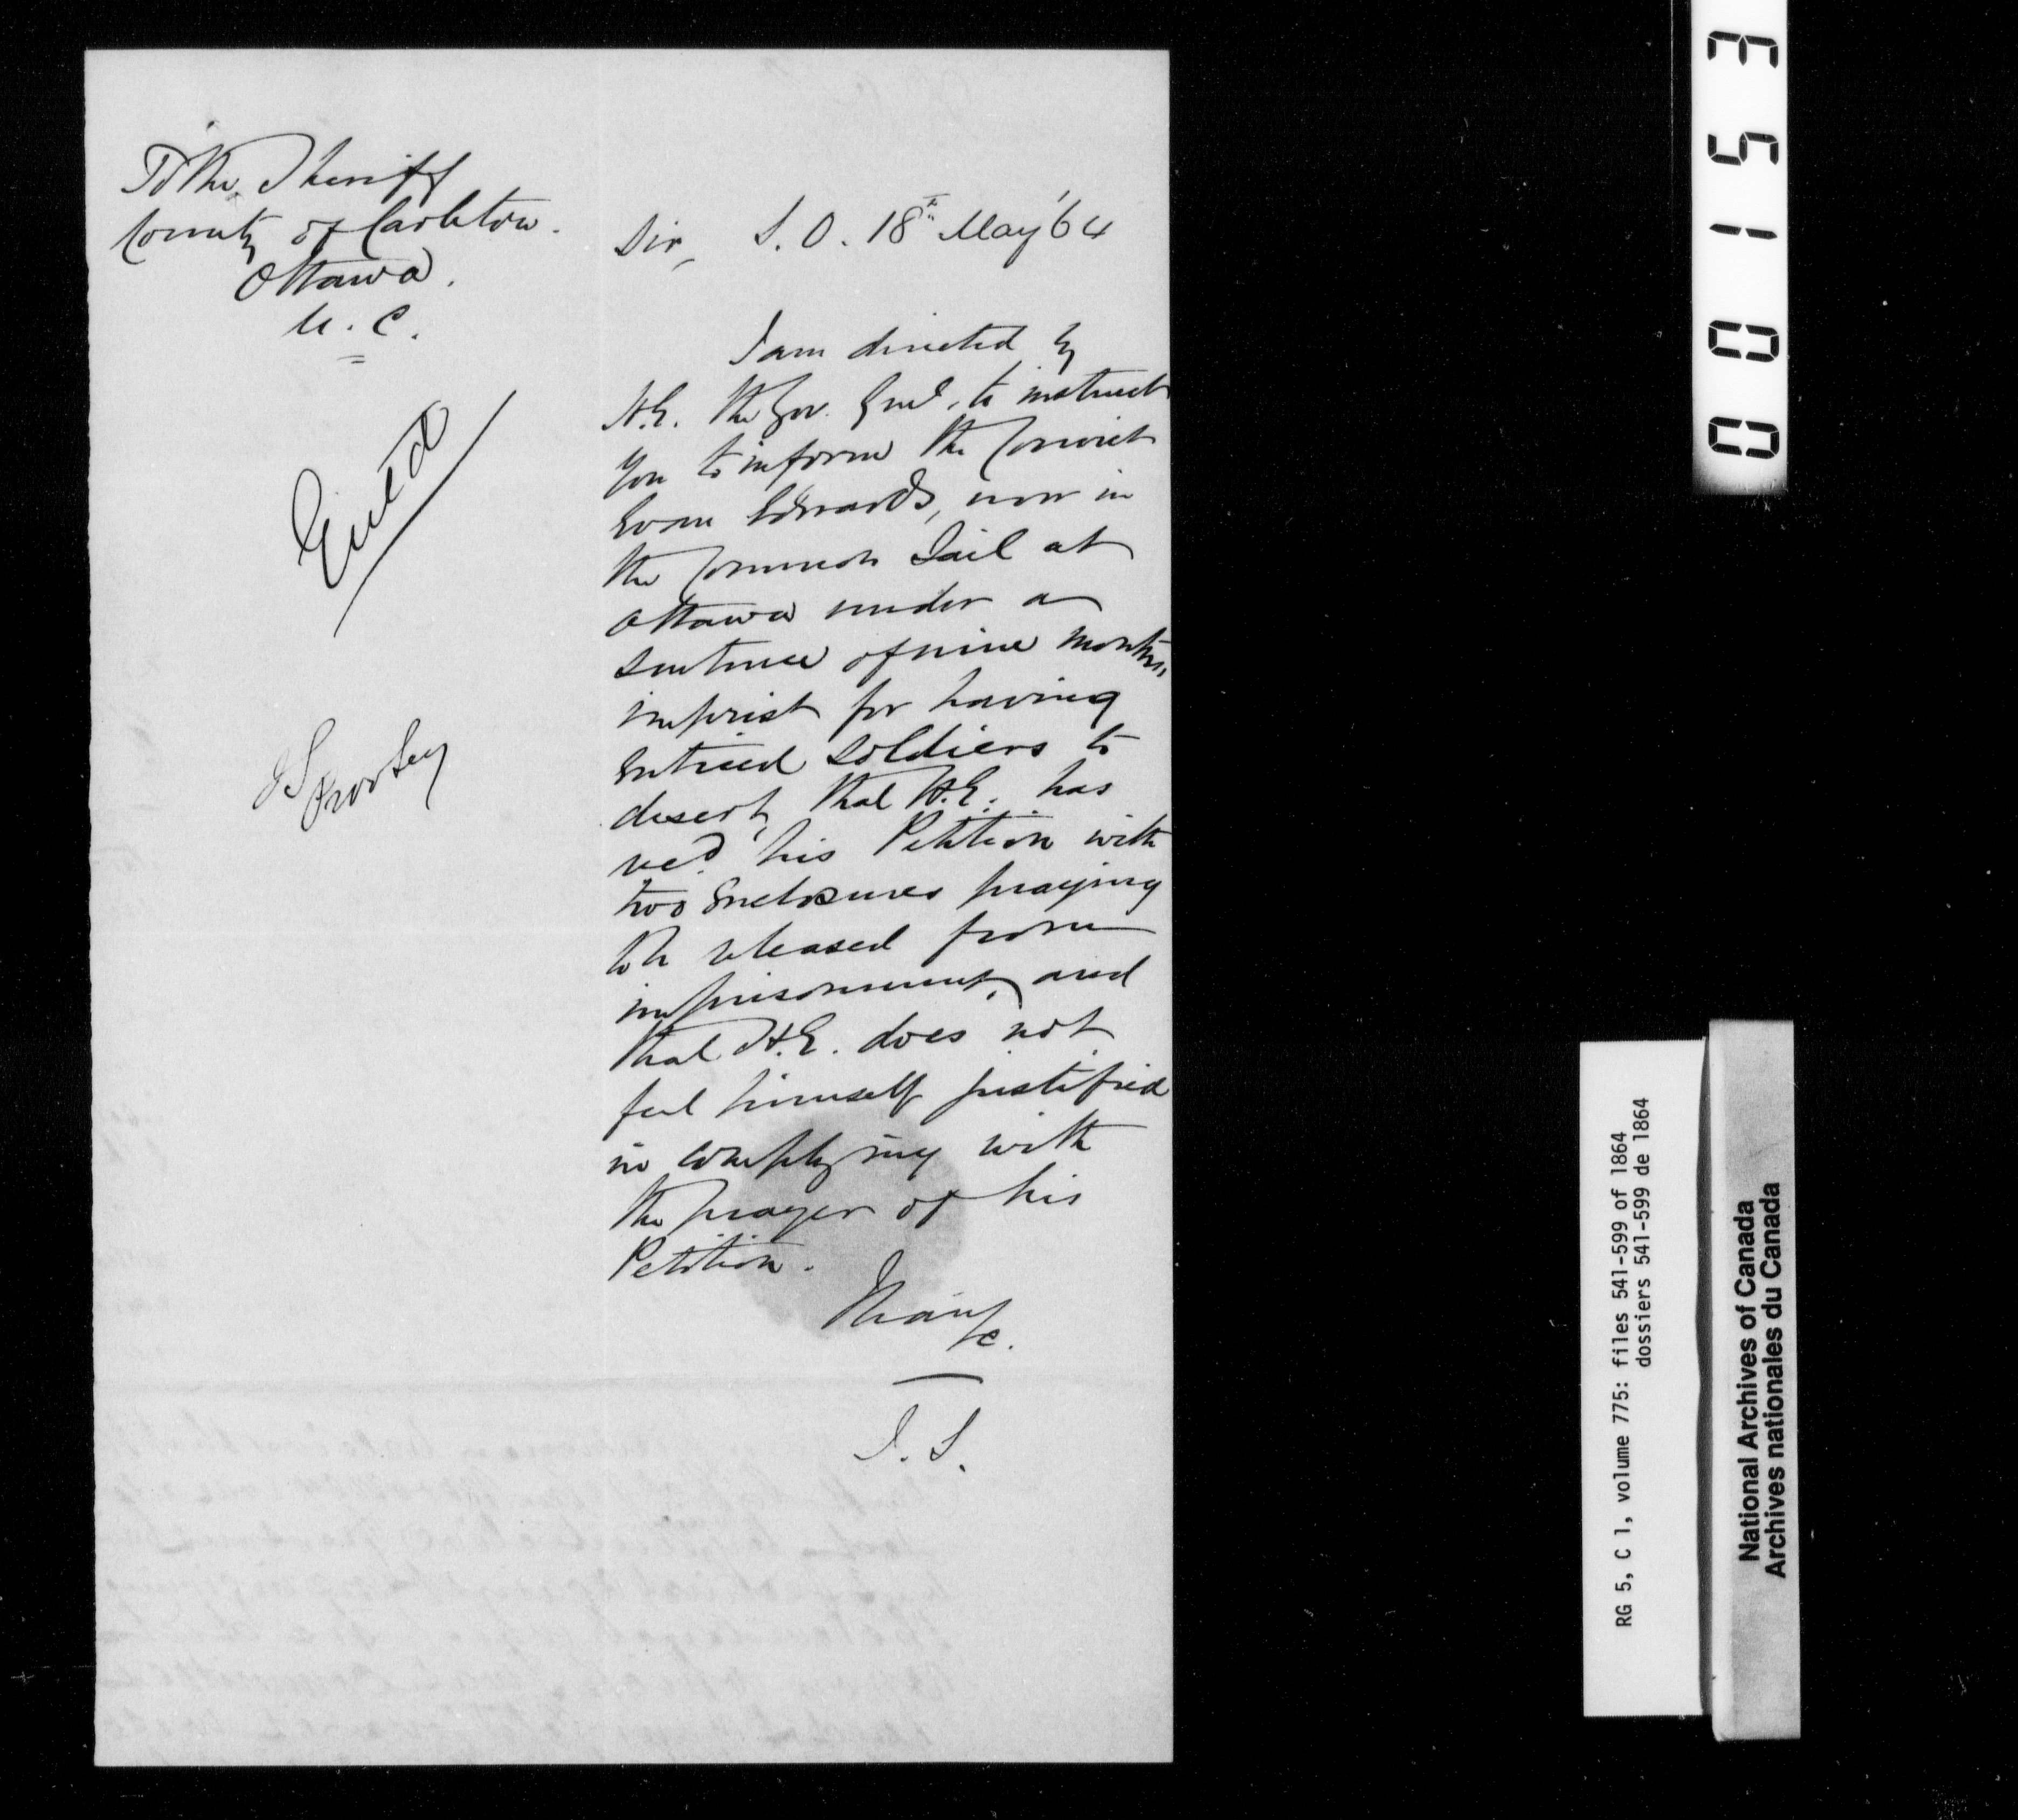 To the Sheriff
County of Carleton.
Ottawa.
U. C.
Sir, S. O. 18th May '64
I am directed by
H.E. the Gov. Genl. to instruct
you to inform the Convict
Evan Edwards, now in
the Common Jail at
Ottawa under a
sentence of nine months
imprist for having
enticed soldiers to
desert, that H.E. has
recd. his Petition with
two Enclosures praying
to be released from
imprisonment, and
that H.E. does not
feel himself justified
in complying with
the prayer of his
Petition.
I have
&c.
Entd
00153
RG 5, C 1, volume 775: files 541-599 of 1864
dossiers 541-599 de 1864
National Archives of Canada
Archives nationales du Canada